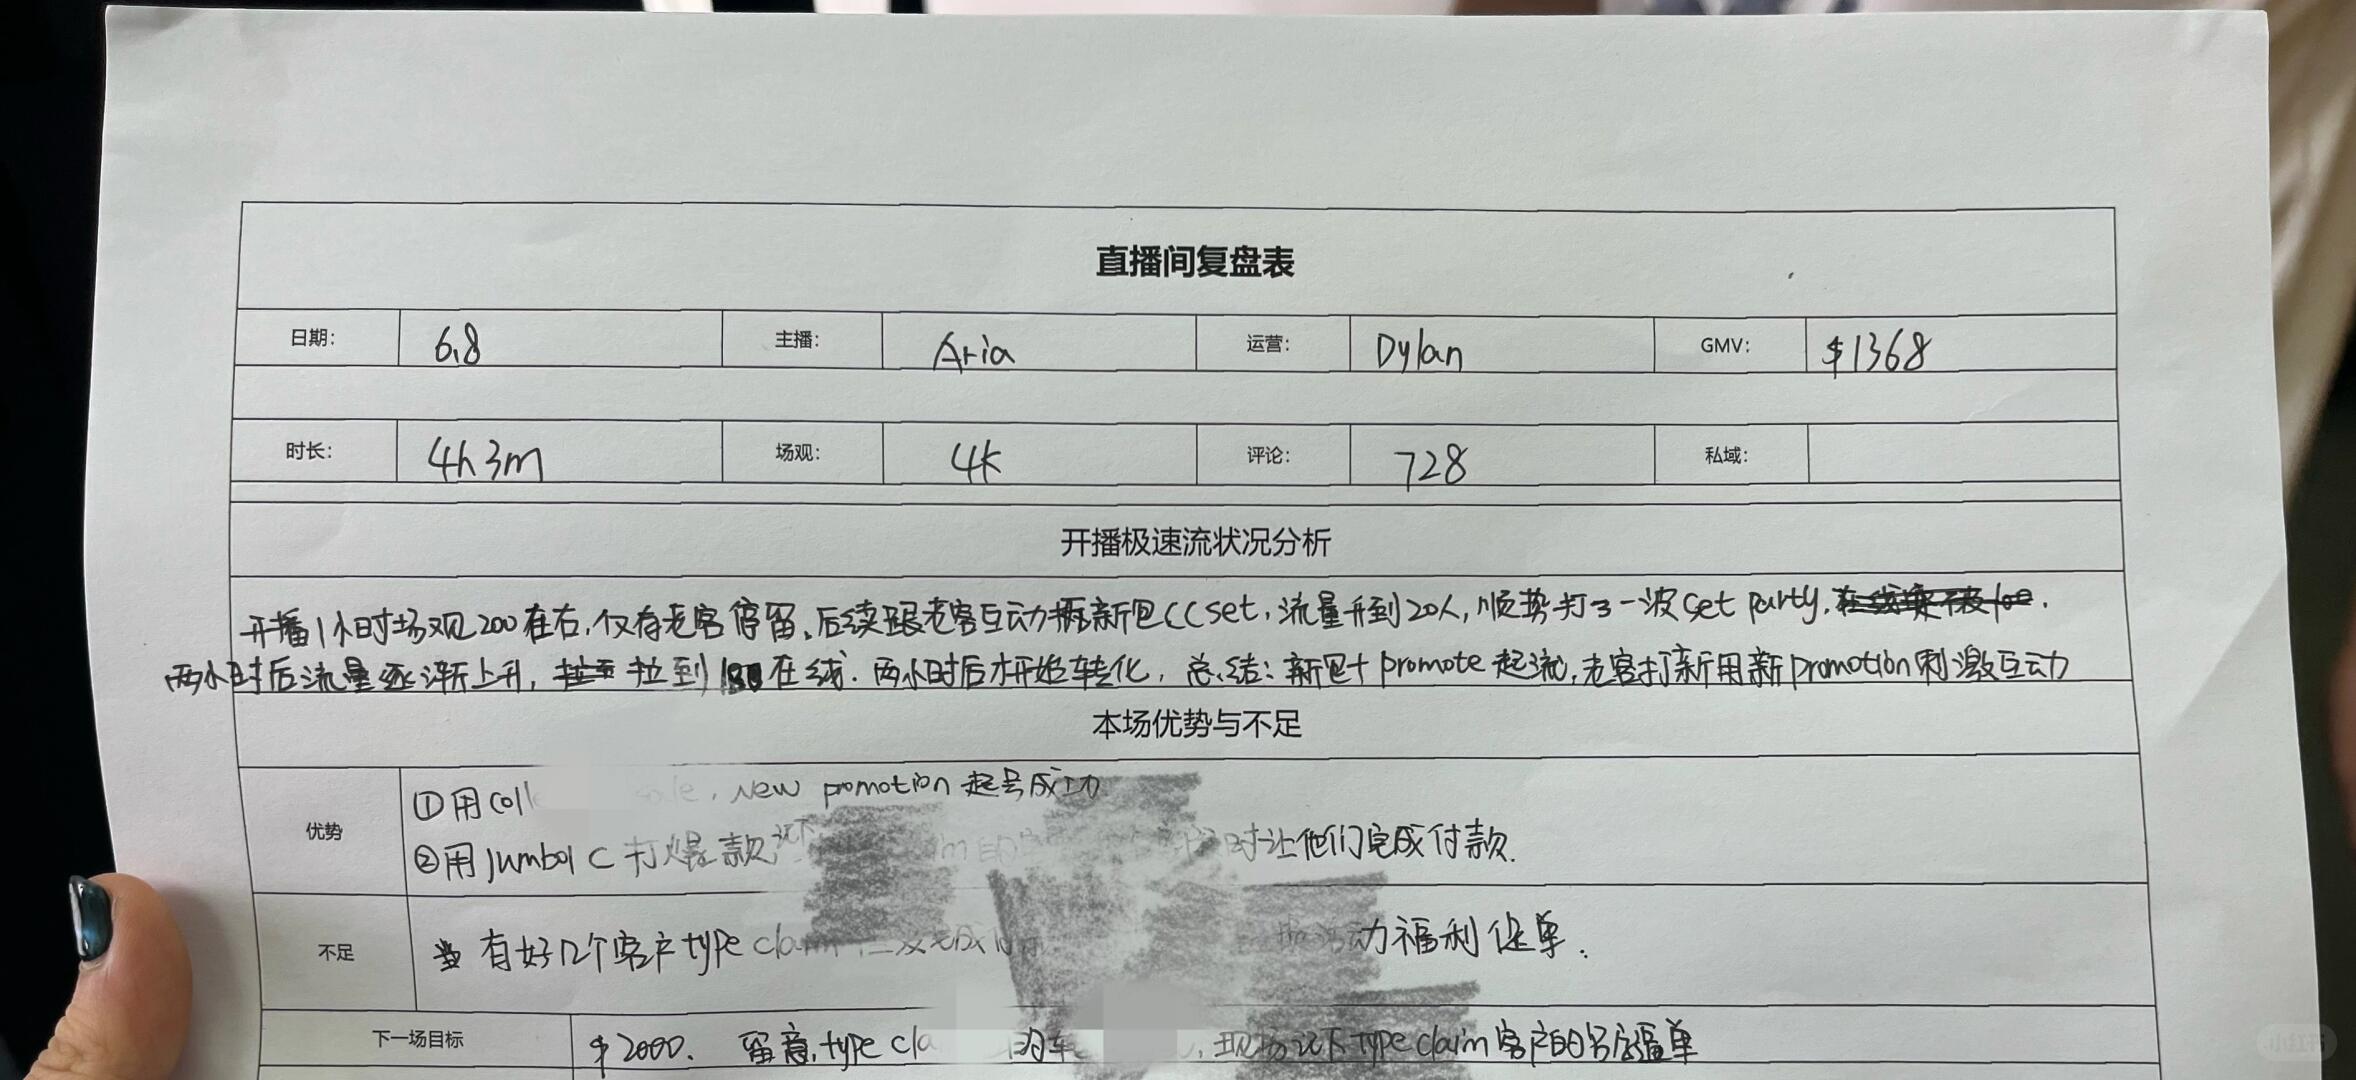 直播间复盘表
日期: 6.8 主播: Aria 运营: Dylan GMV: $1368
时长: 4h3m 场观: 4K 评论: 728 私域:
开播极速流状况分析
开播1小时场观200在右,仅存老客停留,后续跟老客互动 新包CC set,流量升到20人,顺势打了一波set party,
两小时后流量逐渐上升, 拉到 在线.两小时后才开始转化, 总结:新包+promote起流,老客打新用新promotion刺激互动
本场优势与不足
优势 ①用coll , New promotion 起号成功
②用Jumbol C 打爆款 时让他们完成付款.
不足 有好几个客户type claim 动福利促单.
下一场目标 $2000. 留意,type cla ,现场记下type claim客户的名字逼单
小红书